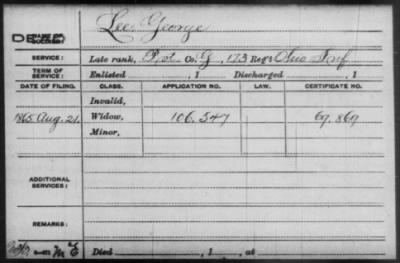 Lee George
NAME OF SOLDIER:
SERVICE: Late rank, Pvt Co. G, 173 Reg't Ohio Inf
TERM OF SERVICE: Enlisted , 1 Discharged , 1
DATE OF FILING. CLASS. APPLICATION NO. LAW. CERTIFICATE NO.
Invalid,
1865. Aug. 21. Widow, 106.347 69.869
Minor,
ADDITIONAL SERVICES:
REMARKS:
Died , 1 , at